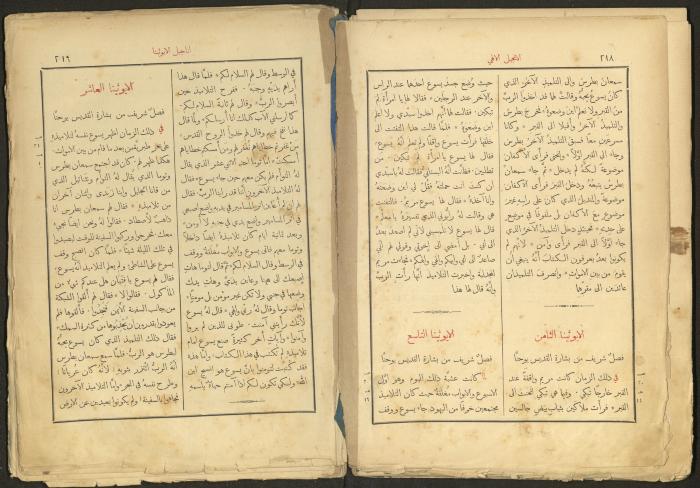 ٢١٨
سمعان بطرس والى التلميذ الآخر الذي
كان يسوع يحبهُ وقالت لهما قد اخذوا الربَّ
من القبر ولا نعلم اين وضعوهُ ٭ فخرج بطرس
والتلميذ الآخر واقبلا الى القبر ٭ وكانا
مسرعين معاً فسبق التلميذ الآخر بطرس
وجاء الى القبر اولاً ٭ وانحنى فرأى الاكفان
موضوعةً لكنهُ لم يدخل ٭ ثم جاء سمعان
بطرس يتبعهُ ودخل القبر فرأى الاكفان
موضوعة والمنديل الذي كان على رأسهِ غير
موضوعٍ مع الاكفان بل ملفوفاً في موضعٍ
على حدته ٭ فحينئذٍ دخل التلميذ الآخر الذي
جاء اولاً الى القبر فرأى وآمن ٭ لانهم لم
يكونوا بعدُ يعرفون الكتاب انهُ ينبغي ان
يقوم من بين الاموات ٭ وانصرف التلميذان
عائدين الى مقرهما
الابوثينا الثامن
فصلٌ شريف من بشارة القديس يوحنا
في ذلك الزمان كانت مريم واقفةً عند
القبر خارجاً تبكي ٭ وفيما هي تبكي انحنت الى
القبر ٭ فرأت ملاكين بثيابٍ بيضٍ جالسين
حيث وُضع جسد يسوع احدهما عند الراس
والآخر عند الرجلين ٭ فقالا لها يا امرأة لِمَ
تبكين ٭ فقالت لهما انهم اخذوا سيدي ولا اعلم
اين وضعوهُ ٭ فلما قالت هذا التفتت الى
خلفها فرأت يسوع واقفاً ولم تعلم انهُ يسوع ٭
فقال لها يسوع يا امرأة لِمَ تبكين ٭ من
تطلبين ٭ فظنت انهُ البستاني فقالت لهُ يا سيدي
ان كنت انت حملتهُ فقل لي اين وضعتهُ
وانا آخذهُ ٭ فقال لها يسوع مريم ٭ فالتفتت
هي وقالت لهُ رابوني الذي تفسيرهُ يا معلم ٭
قال لها يسوع لا تلمسيني لاني لم اصعد بعدُ
الى ابي ٭ بل امضي الى اخوتي وقولي لهم اني
صاعدٌ الى ابي وابيكم والهي والهكم ٭ فجاءت مريم
المجدلية واخبرت التلاميذ انها رأت الرب
وانهُ قال لها هذا
الابوثينا التاسع
فصلٌ شريف من بشارة القديس يوحنا
كانت عشية ذلك اليوم وهو اوَّل
الاسبوع والابواب مغلَّقةٌ حيث كان التلاميذ
مجتمعين خوفاً من اليهود جاءَ يسوع ووقف
٢١٩
اناجيل الابوثينا
في الوسط وقال لهم السلام لكم ٭ فلما قال هذا
أراهم يديهِ وجنبهُ ٭ ففرح التلاميذ حين
ابصروا الربَّ ٭ وقال لهم ثانيةً السلام لكم ٭
كما ارسلني الآب كذلك انا أرسلكم ٭ ولما قال
هذا نفخ فيهم وقال لهم خذوا الروح القدس ٭
من غفرتم خطاياهم تُغفر لهم ومن أمسكتم خطاياهم
أُمسكت ٭ اما توما احد الاثني عشر الذي يقال
لهُ التوأم فلم يكن معهم حين جاء يسوع ٭ فقال
لهُ التلاميذ الآخرون اننا قد رأينا الربَّ فقال
لهم ان لم أُعاين اثر المسامير في يديهِ واضع اصبعي
في اثر المسامير واضع يدي في جنبهِ لا أومن ٭
وبعد ثمانية ايام كان تلاميذهُ ايضاً داخلاً
وتوما معهم فاتى يسوع والابواب مغلَّقةٌ ووقف
في الوسط وقال السلام لكم ٭ ثم قال لتوما هات
اصبعك الى ههنا وعاين يديَّ وهات يدك
وضعها في جنبي ولا تكن غير مؤمن بل مومناً ٭
اجاب توما وقال لهُ ربي والهي ٭ قال لهُ يسوع
لانك رأيتني آمنت ٭ طوبى للذين لم يروا
وآمنوا ٭ وآيات أُخر كثيرة صنع يسوع امام
تلاميذهِ لم تكتب في هذا الكتاب ٭ وانما هذه
فقد كتبت لتومنوا بانَّ يسوع هو المسيح ابن
الله ولكي تكون لكم اذا آمنتم حياةٌ باسمهِ
الابوثينا العاشر
فصلٌ شريف من بشارة القديس يوحنا
في ذلك الزمان اظهر يسوع نفسهُ لتلاميذهِ
على بحر طبرية من بعد ما قام من بين الاموات ٭
هكذا ظهر لهم ٭ كان قد اجتمع سمعان بطرس
وتوما الذي يقال لهُ التوأم ونثنائيل الذي
من قانا الجليل وابنا زبدى واثنان آخران
من تلاميذهِ ٭ فقال لهم سمعان بطرس انا
ذاهبٌ لأصطاد ٭ فقالوا لهُ ونحن ايضاً نجيء
معك فخرجوا وركبوا السفينة للوقت ولم يصيدوا
في تلك الليلة شيئاً ٭ فلما كان الصبح وقف
يسوع على الشاطئ ولم يعلم التلاميذ انهُ يسوع ٭
فقال لهم يسوع يا فتيان هل عندكم شيءٌ من
المأكول ٭ فقالوا لا ٭ فقال لهم ألقوا الشبكة
من جانب السفينة الأيمن فتجدوا ٭ فألقوها فلم
يعودوا يقدرون ان يجذبوها من كثرة السمك ٭
فقال ذلك التلميذ الذي كان يسوع يحبهُ
لبطرس هو الربُّ ٭ فلما سمع سمعان بطرس
انهُ الربُّ اتَّزر بثوبهِ لانهُ كان عُرياناً
وطرح نفسهُ في البحر ٭ واما التلاميذ الآخرون
فجاءوا بالسفينة ٭ ولم يكونوا بعيدين عن الارض